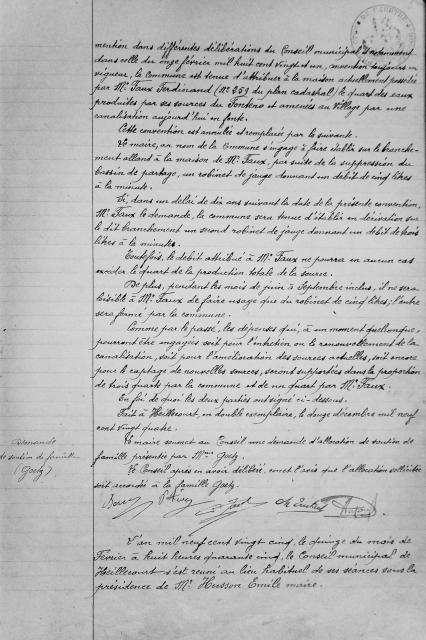 mention dans différentes délibérations du Conseil municipal notamment
dans celle du onze février mil huit cent vingt et un, convention toujours en
vigueur, la Commune est tenue d'attribuer à la maison actuellement possédée
par Mr. Faux Ferdinand (No 259 du plan cadastral) le quart des eaux
produites par ses sources du Fonteno et amenées au village par une
canalisation aujourd'hui en fonte.
Cette convention est annulée et remplacée par la suivante.
Le maire, au nom de la Commune s'engage à faire établir sur le branche-
ment allant à la maison de Mr. Faux, par suite de la suppression du
bassin de partage, un robinet de jauge donnant un débit de cinq litres
à la minute.
Si, dans un délai de dix ans suivant la date de la présente convention,
Mr. Faux le demande, la commune sera tenue d'établir en dérivation sur
le dit branchement un second robinet de jauge donnant un débit de trois
litres à la minute.
Toutefois, le débit attribué à Mr. Faux ne pourra en aucun cas
excéder le quart de la production totale de la source.
De plus, pendant les mois de juin à Septembre inclus, il ne sera
loisible à Mr. Faux de faire usage que du robinet de cinq litres; l'autre
sera fermé par la commune.
Comme par le passé, les dépenses qui, à un moment quelconque,
pourront être engagées soit pour l'entretien ou le renouvellement de la
canalisation, soit pour l'amélioration des sources actuelles, soit encore
pour le captage de nouvelles sources, seront supportées dans la proportion
de trois quarts par la commune et de un quart par Mr. Faux.
En foi de quoi les deux parties ont signé ci-dessous.
Fait à Heillecourt, en double exemplaire, le douze décembre mil neuf
cent vingt quatre.
Demande
de soutien de famille
(Goely)
Le maire soumet au Conseil une demande d'allocation de soutien de
famille présentée par Mme Goely.
Le Conseil après en avoir délibéré, émet l'avis que l'allocation sollicitée
soit accordée à la famille Goely.
L'an mil neuf cent vingt cinq, le quinze du mois de
Février à huit heures quarante cinq, le Conseil municipal de
Heillecourt s'est réuni au lieu habituel de ses séances sous la
présidence de Mr. Husson Emile maire.